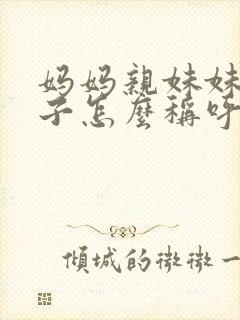 妈妈親妹妹
子怎麼稱呼
傾城的微微一